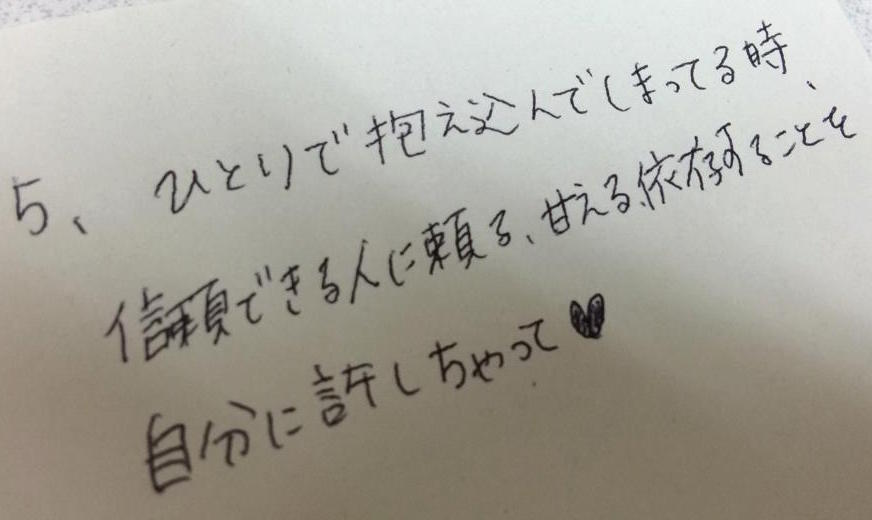 5、 ひとりで抱え込んでしまってる時、
信頼できる人に頼る、甘える、依存することを
自分に許しちゃって♥